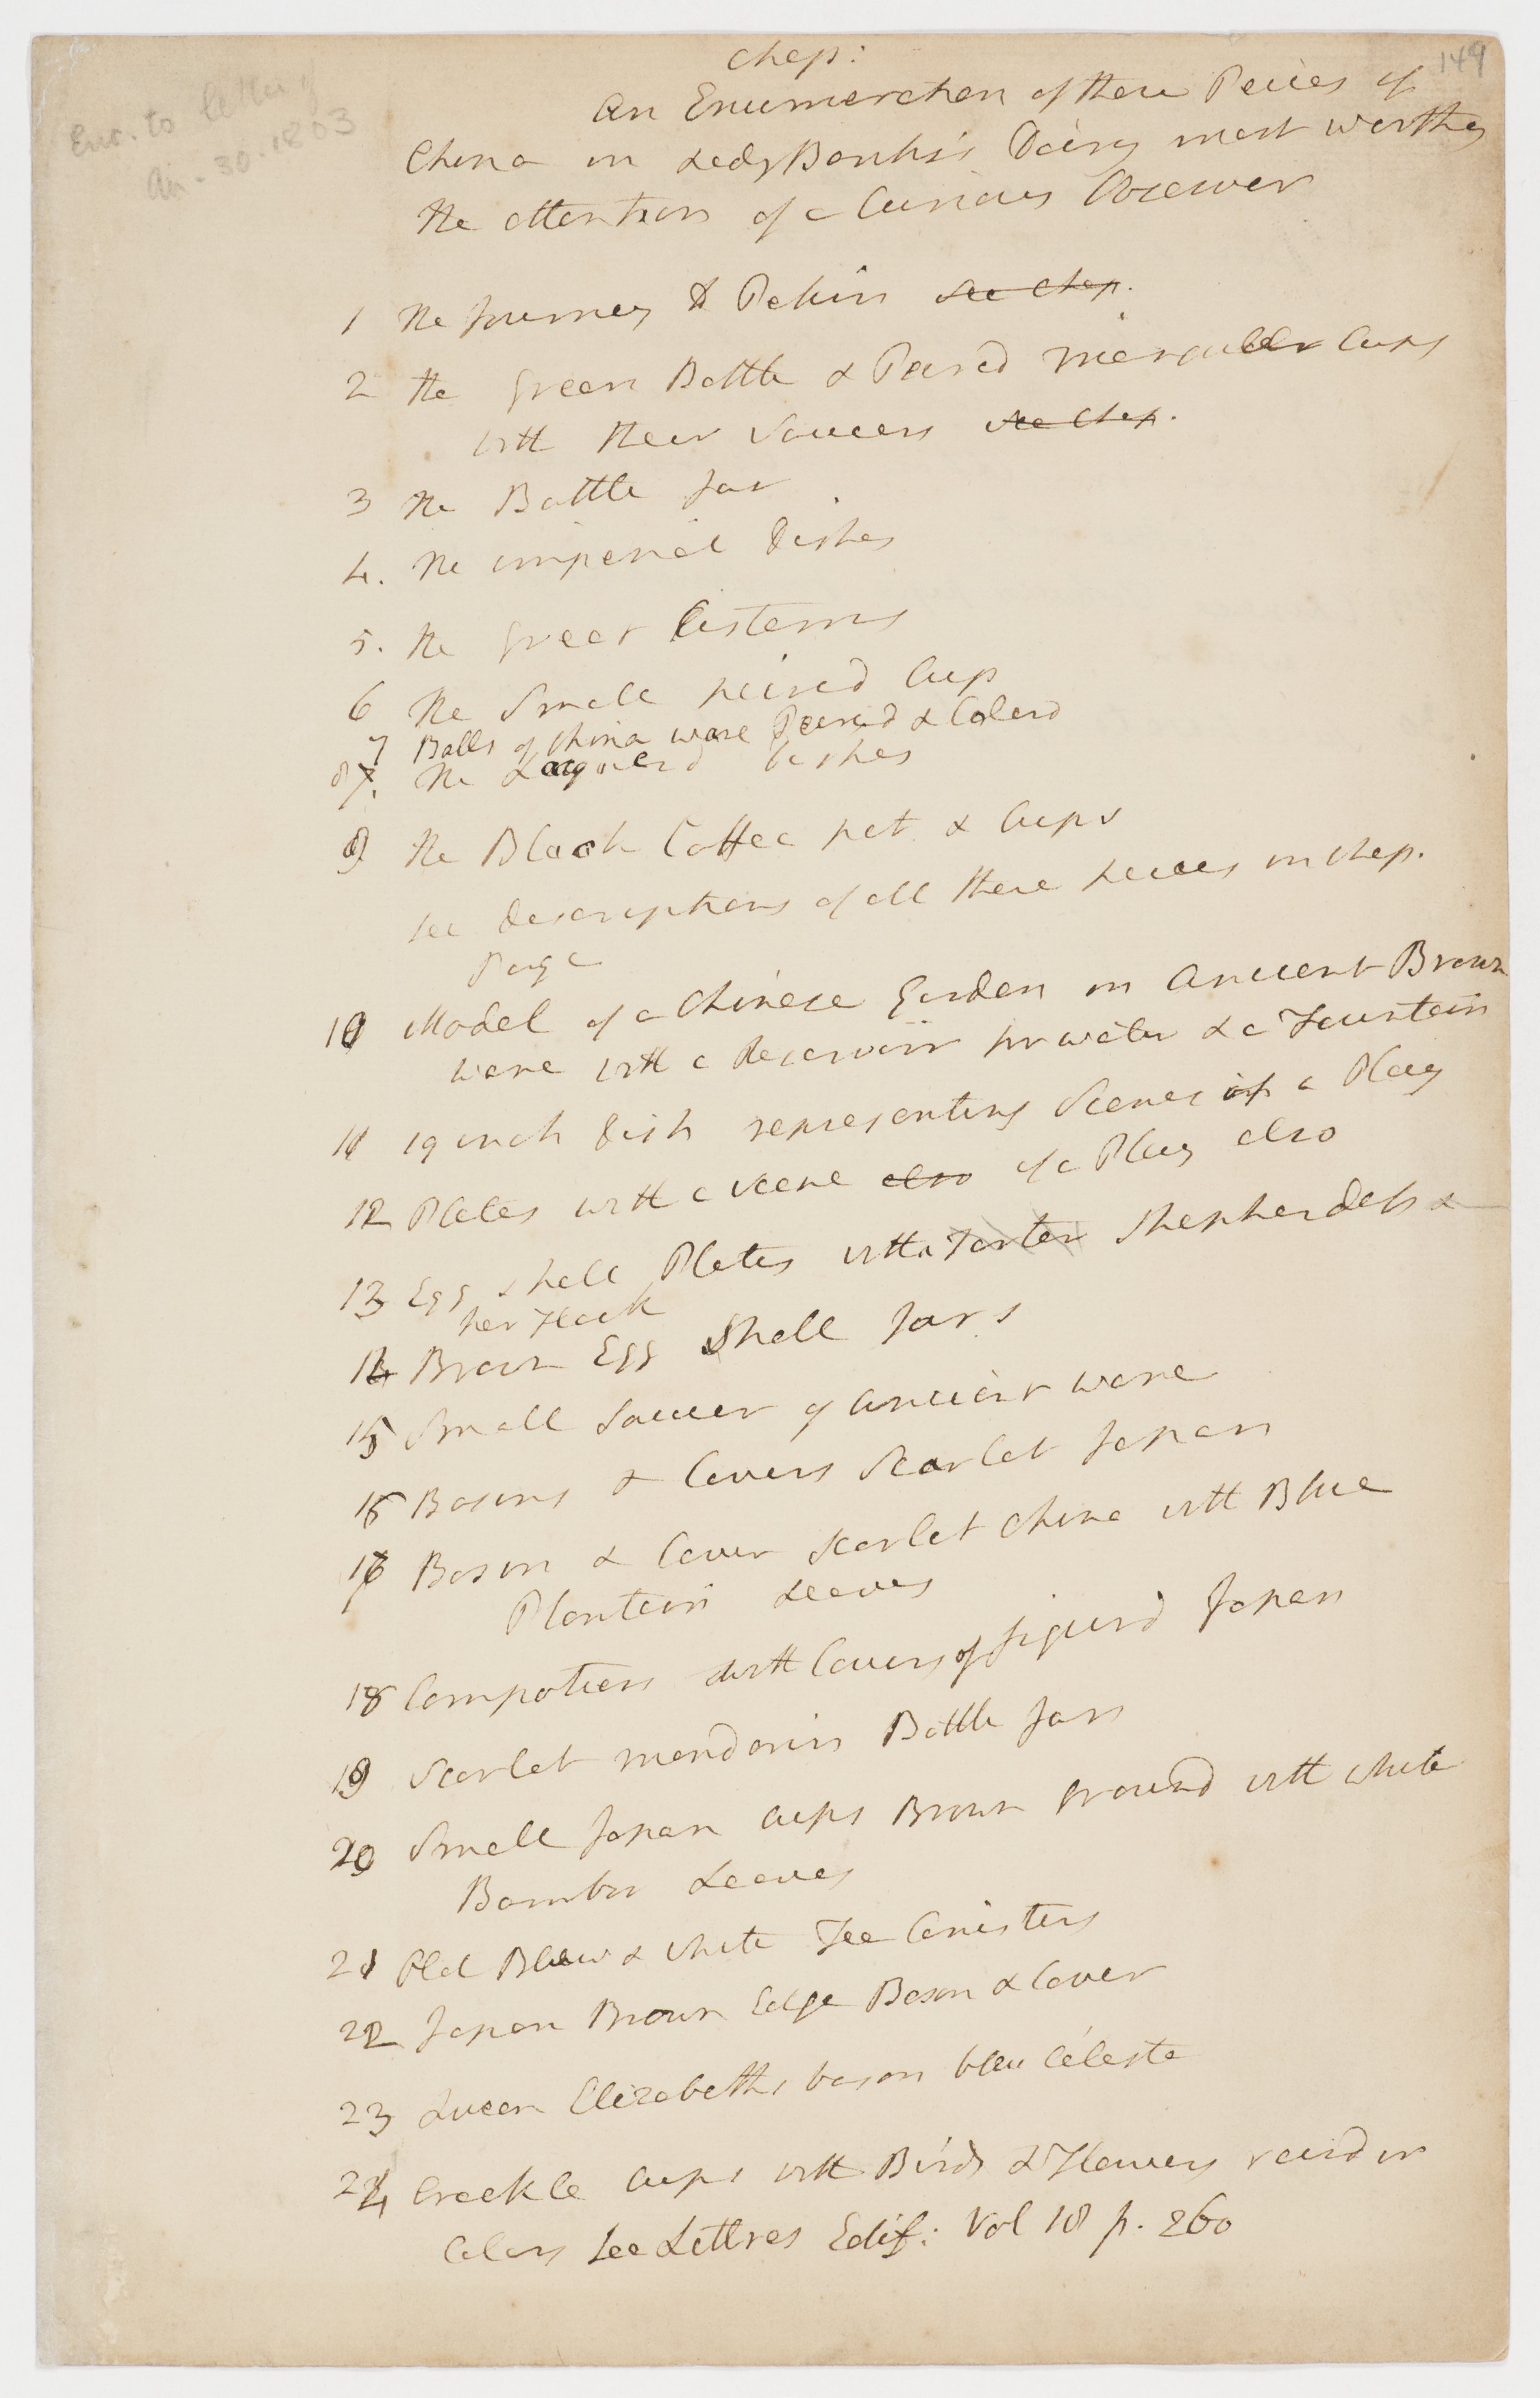 Chap:
149
Enc. to letter of
30. 1803
An Enumeration of those Peices of
China in Lady Banks's Dairy most worthy
the attention of a Curious Observer
1 The Journey to Pekin see Chap.
2 the Green Bottle & Peird cups
with their Saucers see Chap.
3 The Bottle Jar
4. The imperial dishes
5. The Great Cisterns
6 The Small peired Cup
7 Balls of China ware Peired & Colerd
8 The Laquerd dishes
9 The Black Coffee pot & Cups
see descriptions of all these peices in Chap.
Page
10 Model of a Chinese Garden in ancient Brown
ware with a Reservoir for water & a Fountain
11 19 inch dish representing Scenes of a Play
12 Plates with a scene also of a Play also
13 Egg shell Plates with a Tarter Shepherdess &
her Flock
14 Brown Egg Shell Jars
15 Small Saucer of ancient ware
16 Basins & Covers Scarlet Japan
17 Bason & Cover Scarlet China with Blue
Plantain Leaves
18 Compotiers with Covers of figurd Japan
19 Scarlet mandarin Bottle Jars
20 Small Japan cups Brown ground with white
Bambu Leaves
21 Old Blew & white Tea Canisters
22 Japan Brown Edge Bason & Cover
23 Queen Elizabeths bason bleu céleste
24 Crackle cups with Birds & Flowers raisd in
Colors See Lettres Edif: Vol 18 p. 260